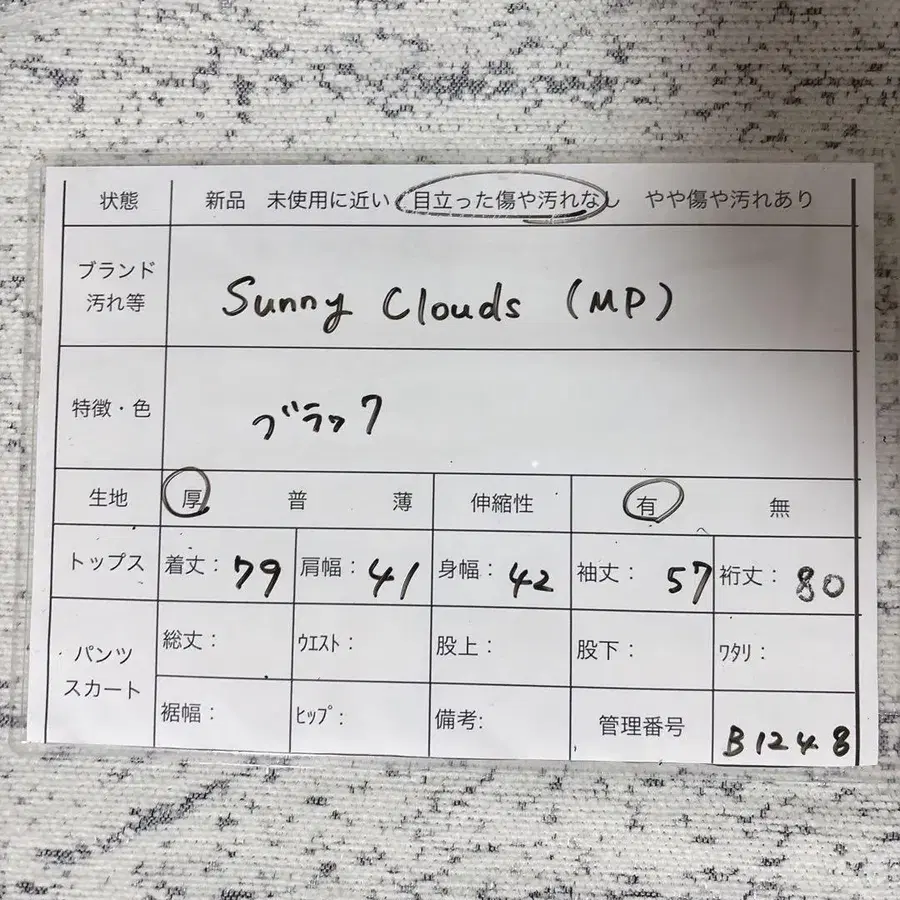 状態 新品 未使用に近い 目立った傷や汚れなし やや傷や汚れあり
ブランド
汚れ等
Sunny Clouds (MP)
特徴・色 ブラック
生地 厚 普 薄 伸縮性 有 無
トップス 着丈：79 肩幅：41 身幅：42 袖丈：57 裄丈：80
パンツ
スカート
総丈： ｳｴｽﾄ： 股上： 股下： ﾜﾀﾘ：
裾幅： ﾋｯﾌﾟ： 備考: 管理番号 B1248